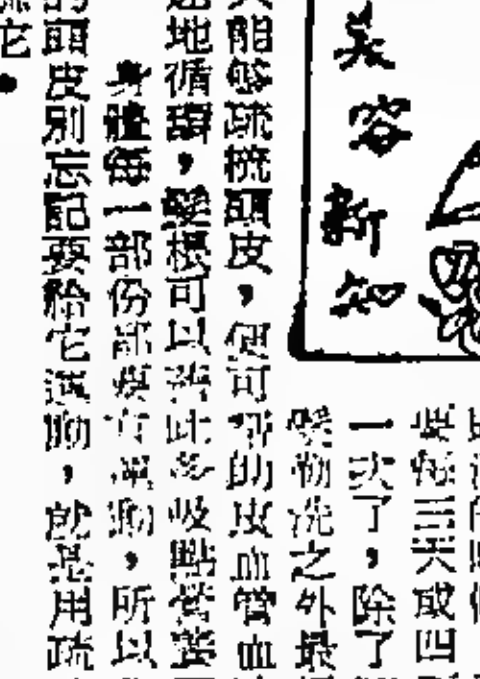 美容新知
要每三天或四
一次了,除了
髮勤洗之外最
能够疏梳頭皮,便可幫助皮血管血
地循環,髮根可以藉此多吸點營養
身體每一部份都要有運動,所以
頭皮別忘記要給它運動,就是用疏
它。